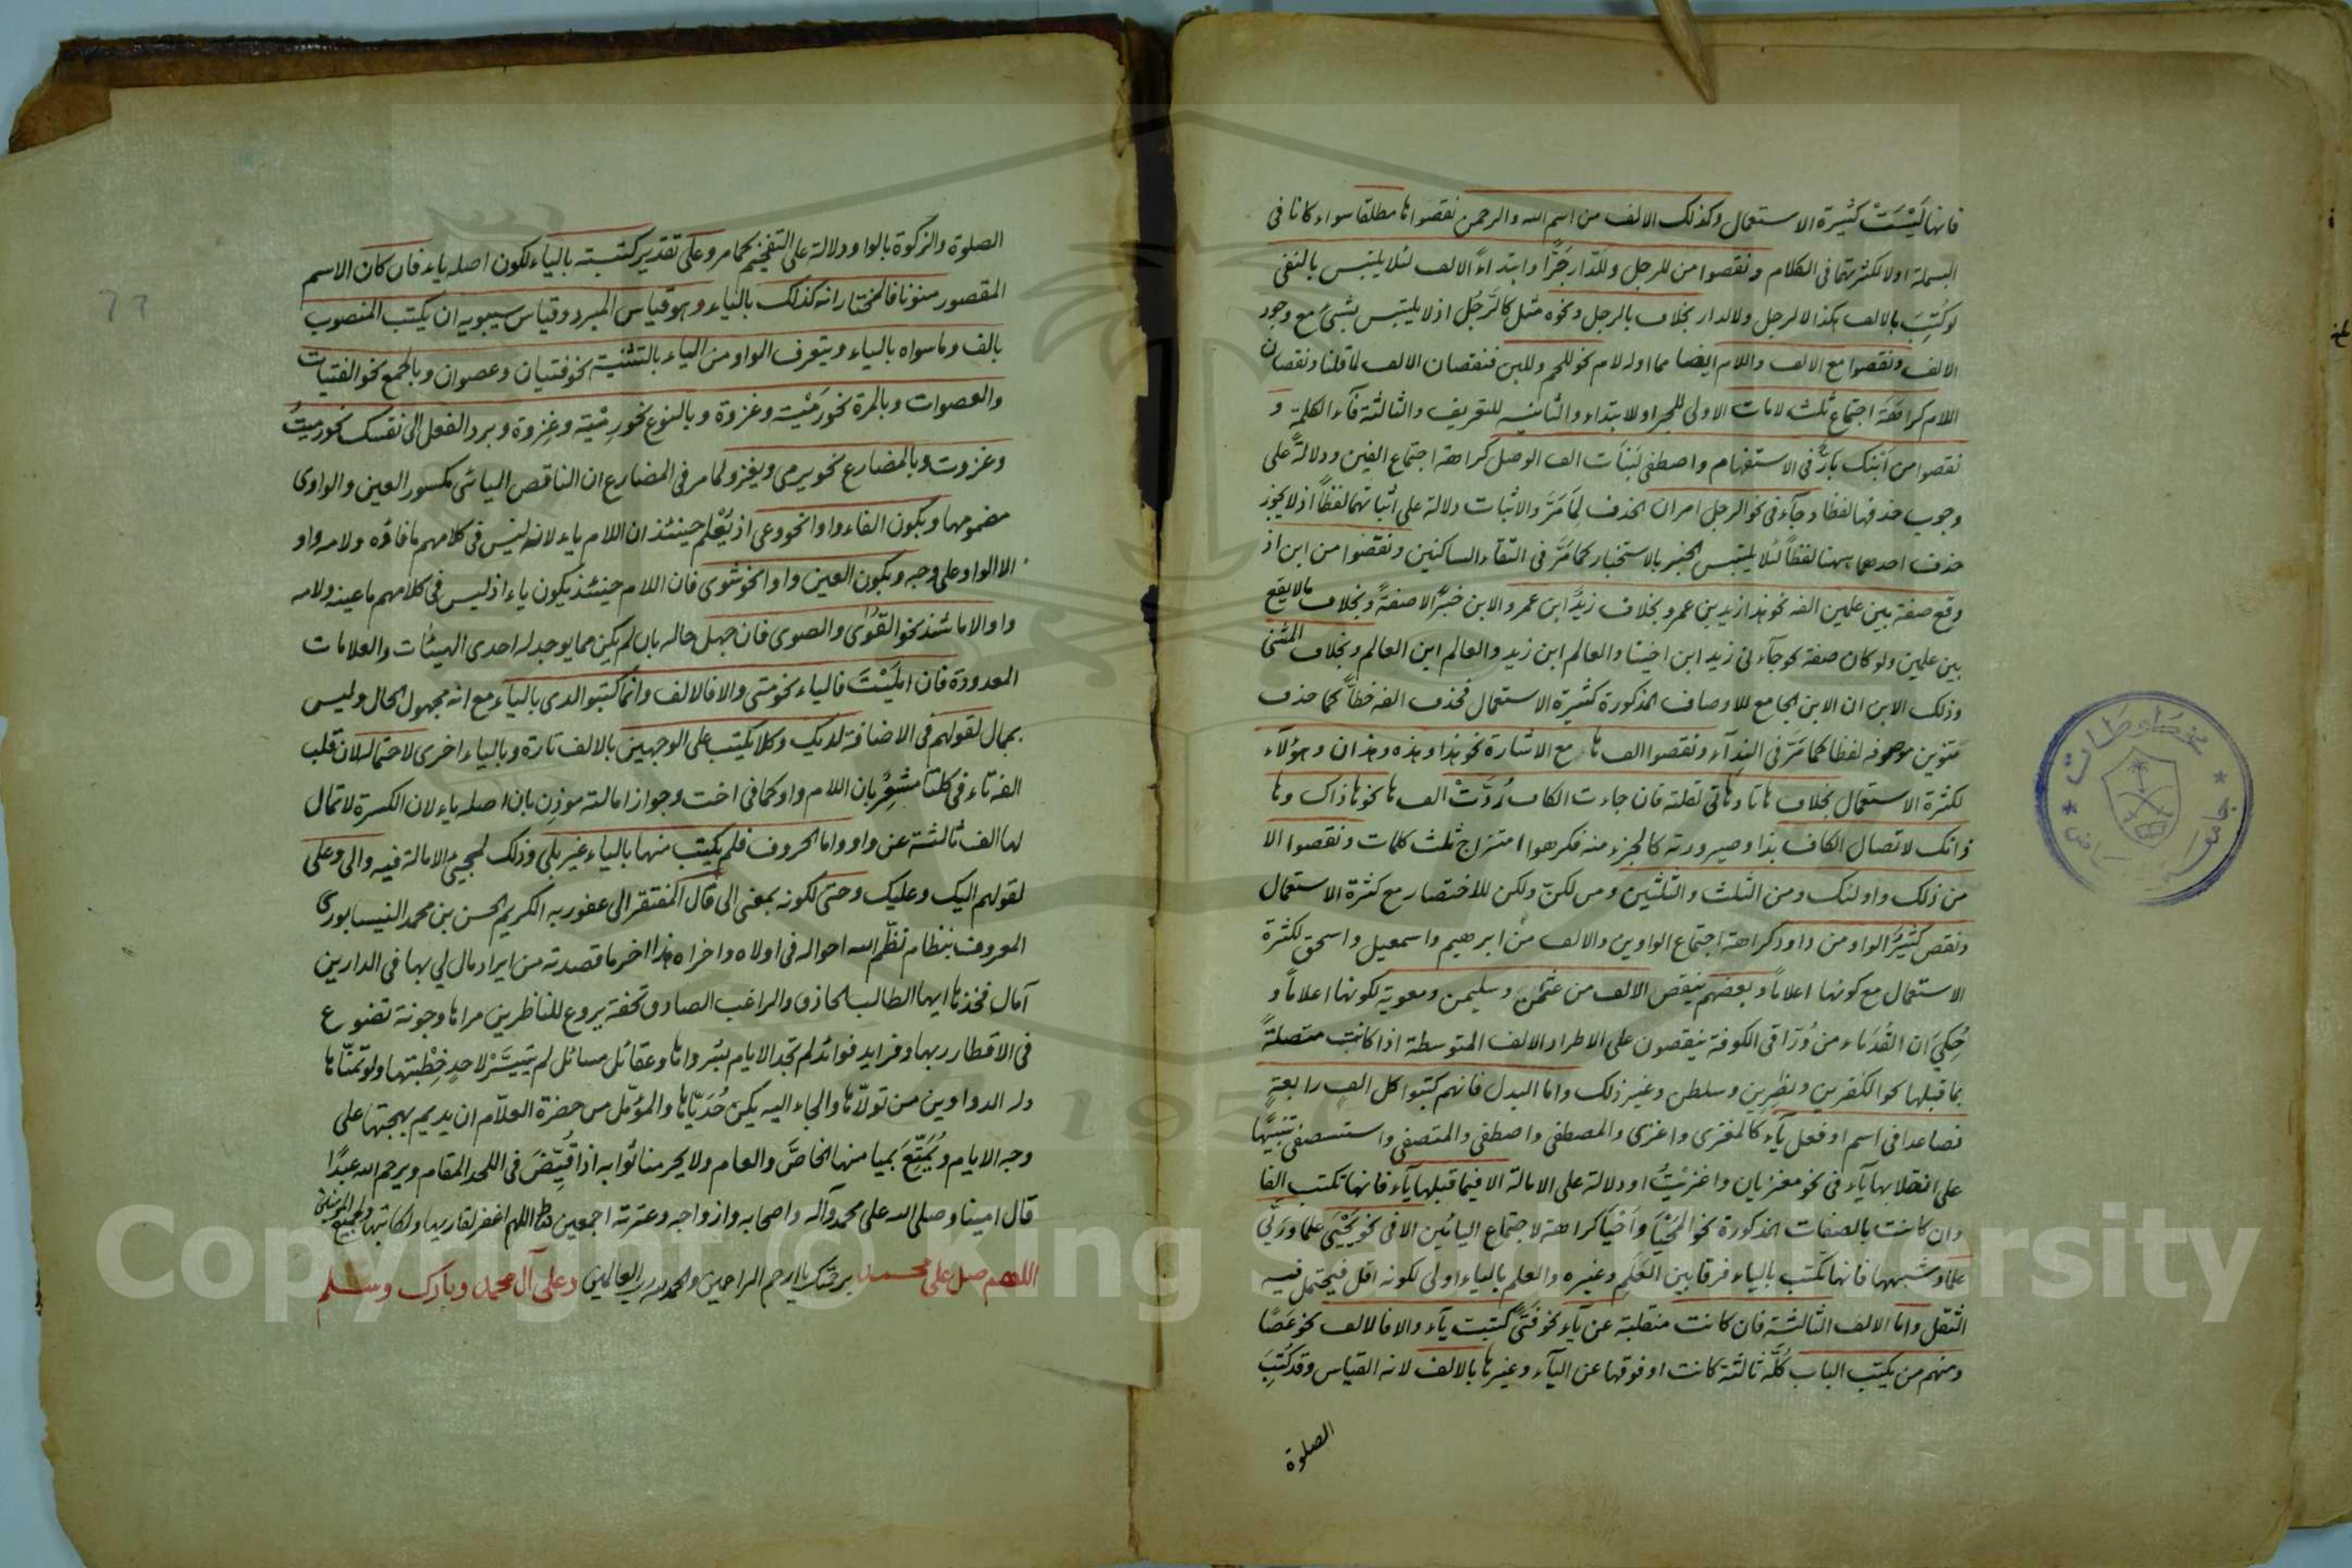 فانها لَيْسَتْ كثيرة الاستعمال وكذلك الالف من اسم الله والرحمن نقصوها مطلقا سواء كانا فى
البسملة اولا لكثرتهما فى الكلام ونقصوا من للرجل وللدّار جَرًّا وابتداءً الالف لئلا يلتبس بالنفى
لو كُتِبَ بالالف هكذا لالرجل ولالدار بخلاف بالرجل ونحوه مثل كالرَّجُل اذ لا يلتبس بشئ مع وجود
الالف ونقصوا مع الالف واللام ايضا مما اوله لام نحو للحم وللبن فنقصان الالف لما قلنا ونقصان
اللام كراهَةَ اجتماع ثلث لامات الاولى للجر او للابتداء والثانية للتعريف والثالثة فآء الكلمة و
نقصوا من اَبْنك بارٌّ فى الاستفهام واصطفى البَنات الف الوصل كراهة اجتماع الفين ودلالةً على
وجوب حذفها لفظا وجآء فى نحو الرجل امران الحذف لِمَا مَرَّ والاثبات دلالة على اثباتهما لفظاً اذ لا يجوز
حذف احدهما ههنا لفظاً لئلا يلتبس الخبر بالاستخبار كما مَرَّ فى التقاء الساكنين ونقصوا من ابن اذ
وقع صفة بين علمين الفه نحو هذا زيد بن عمرو بخلاف زيدٌ ابن عمرو الابن خبرٌ لا صفةٌ وبخلاف ما لا يقع
بين علمين ولو كان صفة نحو جآءنى زيد ابن اخينا والعالم ابن زيد والعالم ابن العالم وبخلاف المثنى
وذلك الابن ان الابن الجامع للاوصاف المذكورة كثيرة الاستعمال فحذف الفه خطاًّ كما حذف
تنوين موصوفه لفظا كما مَرَّ فى الندآء ونقصوا الف ها مع الاشارة نحو هذا وهذه وهذان وهؤلاء
لكثرة الاستعمال بخلاف هاتا وهاتى لقلته فان جاءت الكاف رُدَّتْ الف ها نحو هاذاك وها
ذانك لاتصال الكاف بذا وصيرورته كالجزء منه فكرهوا امتزاج ثلث كلمات ونقصوا الا
من ذلك واولئك ومن الثلث والثلثين ومن لكنّ ولكن للاختصار مع كثرة الاستعمال
ونقص كثيرٌ الواو من داود كراهة اجتماع الواوين والالف من ابرهيم واسمعيل واسحق لكثرة
الاستعمال مع كونها اعلاماً وبعضهم ينقص الالف من عثمن وسليمن ومعوية لكونها اعلاماً و
حُكِيَ ان القُدَماء من وُرّاق الكوفة ينقصون على الاطراد الالف المتوسطة اذا كانت متصلةً
بما قبلها نحو الكفرين ونظرين وسلطن وغير ذلك واما البدل فانهم كتبوا كل الف رابعةٍ
فصاعدا فى اسم او فعل يآء كالمغزى واغزى والمصطفى واصطفى والمتصفى واستصفى تنبيها
على انقلابها يآء فى نحو مغزيان واغزيتُ او دلالة على الامالة الا فيما قبلها يآء فانها تكتب الفا
وان كانت بالصفات المذكورة نحو المَحْيَا واَحْيَا كراهة لاجتماع اليائين الا فى نحو يَحْيَى علما ورَيَّى
علما وشبهها فانها تكتب بالياء فرقا بين العَلَم وغيره والعلم بالياء اولى لكونه اقل فيحتمل فيه
الثقل واما الالف الثالثة فان كانت منقلبة عن يآء نحو فَتًى كتبت يآء والا فالالف نحو عَصًا
ومنهم من يكتب الباب كُلَّه ثالثة كانت او فوقها عن اليآء وغيرها بالالف لانه القياس وقد كُتِبَ
الصلوة
الصلوة والزكوة بالواو دلالة على التفخيم كما مر وعلى تقدير كتبته بالياء لكون اصله ياء فان كان الاسم
المقصور منونا فالمختار انه كذلك بالياء وهو قياس المبرد وقياس سيبويه ان يكتب المنصوب
بالف وما سواه بالياء ويتعرف الواو من الياء بالتثنية نحو فتيان وعصوان وبالجمع نحو الفتيات
والعصوات وبالمرة نحو رَمْيَة وغزوة وبالنوع نحو رِمْية وغِزوة وبرد الفعل الى نفسك نحو رميتُ
وغزوت وبالمضارع نحو يرمى ويغزو لما مر فى المضارع ان الناقص اليائى مكسور العين والواوى
مضمومها وبكون الفاء واوا نحو وعى اذ يُعْلم حينئذ ان اللام ياء لانه ليس فى كلامهم ما فاؤه ولامه واو
الا الواو على وجه وبكون العين واوا نحو شوى فان اللام حينئذ يكون ياء اذ ليس فى كلامهم ما عينه ولامه
واو الا ما شذ نحو القُوَى والصوى فان جهل حاله بان لم يكن مما يوجد له احدى الهيئات والعلامات
المعدودة فان اميلَتْ فالياء نحو متى والا فالالف وانما كتبوا لدى بالياء مع انه مجهول الحال وليس
بممال لقولهم فى الاضافة لديك وكلا يكتب على الوجهين بالالف تارة وبالياء اخرى لاحتماله لان قلب
الفه تاء فى كلتا مُشعِرٌ بان اللام واو كما فى اخت وجواز امالته موذن بان اصله ياء لان الكسرة لا تمال
لها الف ثالثة عن واو واما الحروف فلم يكتب منها بالياء غير بلى وذلك لمجيئ الامالة فيه والى وعلى
لقولهم اليك وعليك وحتى لكونه بمعنى الى قال المفتقر الى عفو ربه الكريم الحسن بن محمد النيسابورى
المعروف بنظام نظّم الله احواله فى اولاه واخراه هذا اخر ما قصدته من ايراد مال لي بها فى الدارين
آمال فخذها ايها الطالب الحاذق والراغب الصادق تحفة يروع للناظرين مراها وجونة تضوع
فى الاقطار ريها وفرايد فوائد لم تجد الايام بشرواها وعقائل مسائل لم يَتيسَّرْ لاحدٍ خِطْبتها ولو تمنّاها
دلـه الدواوين من تولّاها والجاء اليه يكن حُدَيّاها والمؤمّل من حضرة العلّام ان يديم بهجتها على
وجه الايام ويُمَتِّعَ بميامنها الخاصَّ والعام ولا يحرمنا ثوابه اذا قُيِّضَ فى اللحد المقام ويرحم الله عبدًا
قال امينا وصلى الله على محمد وآله واصحابه وازواجه وعترته اجمعين اللهم اغفر لقاريها ولكاتبها ولجميع المؤمنين
اللهم صل على محمد برحمتك يا ارحم الراحمين والحمد لله رب العالمين وعلى آل محمد وبارك وسلم
Copyright © King Saud University
1957